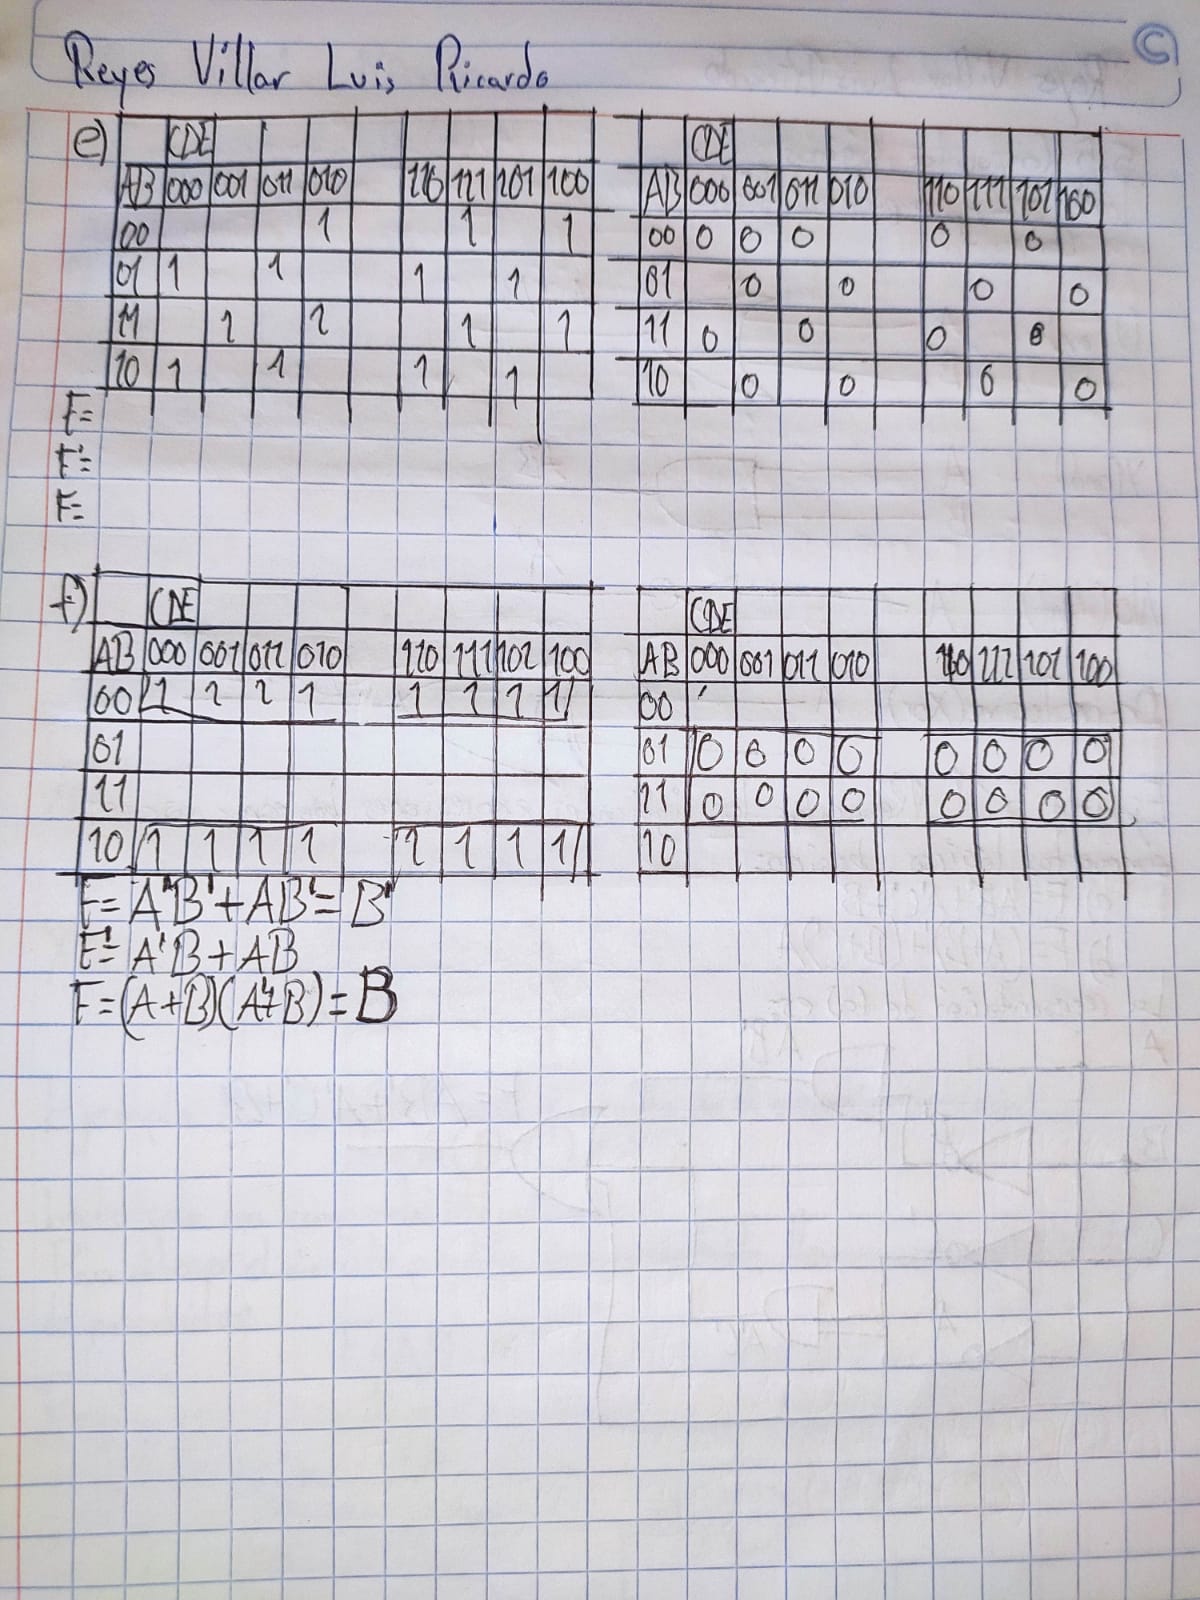 Reyes Villar Luis Ricardo
e) CDE
AB 000 001 011 010 110 111 101 100
00 1 1 1
01 1 1 1 1
11 1 1 1 1
10 1 1 1 1
F=
F'=
F=
CDE
AB 000 001 011 010 110 111 101 100
00 0 0 0 0 0
01 0 0 0 0
11 0 0 0 0
10 0 0 0 0
f) CDE
AB 000 001 011 010 110 111 101 100
00 1 1 1 1 1 1 1 1
01
11
10 1 1 1 1 1 1 1 1
CDE
AB 000 001 011 010 110 111 101 100
00
01 0 0 0 0 0 0 0 0
11 0 0 0 0 0 0 0 0
10
F= A'B'+AB'= B'
F'= A'B+AB
F=(A+B)(A'+B)=B